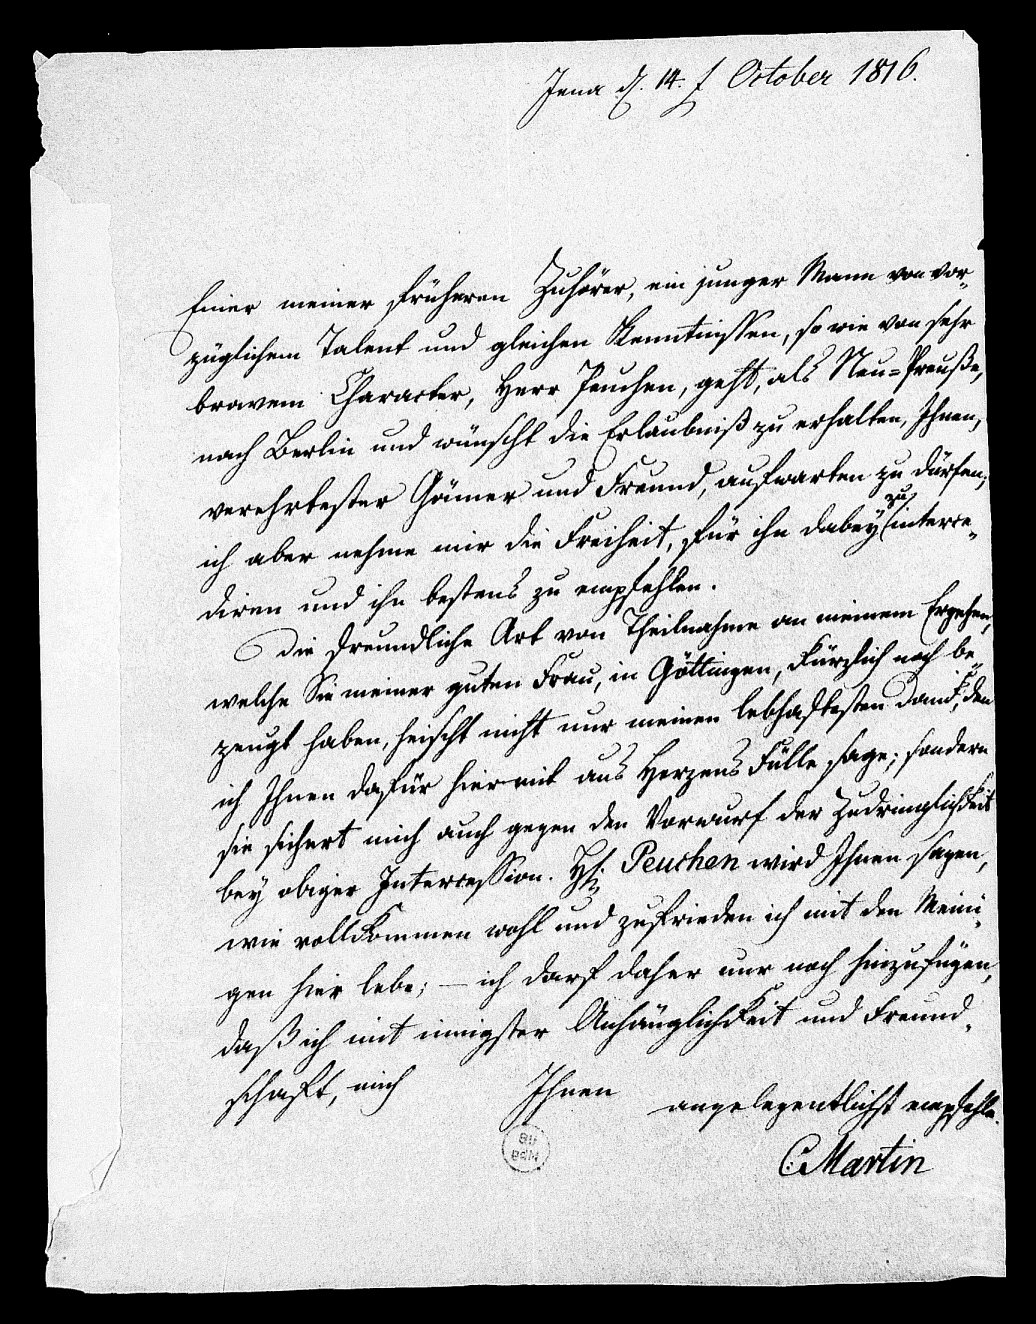 Jena d. 14. October 1816.
Einer meiner früheren Zuhörer, ein junger Mann von vor-
züglichem Talent und gleichen Kenntnissen, so wie von sehr
bravem Character, Herr Peuchen, geht, als Neu-Preuße,
nach Berlin und wünscht die Erlaubniß zu erhalten, Ihnen,
verehrtester Gönner und Freund, aufwarten zu dürfen;
ich aber nehme mir die Freiheit, für ihn dabey zu interce-
diren und ihn bestens zu empfehlen.
Die freundliche Art von Theilnahme an meinem Ergehen,
welche Sie meiner guten Frau, in Göttingen, kürzlich noch be-
zeugt haben, heischt nicht nur meinen lebhaftesten Dank, den
ich Ihnen dafür hiermit aus Herzens Fülle sage; sondern
sie sichert mich auch gegen den Vorwurf der Zudringlichkeit
bey obiger Intercession. H. Peuchen wird Ihnen sagen,
wie vollkommen wohl und zufrieden ich mit den Meini-
gen hier lebe; — ich darf daher nur noch hinzufügen,
daß ich mit innigster Anhänglichkeit und Freund-
schaft, mich Ihnen angelegentlichst empfehle.
C. Martin